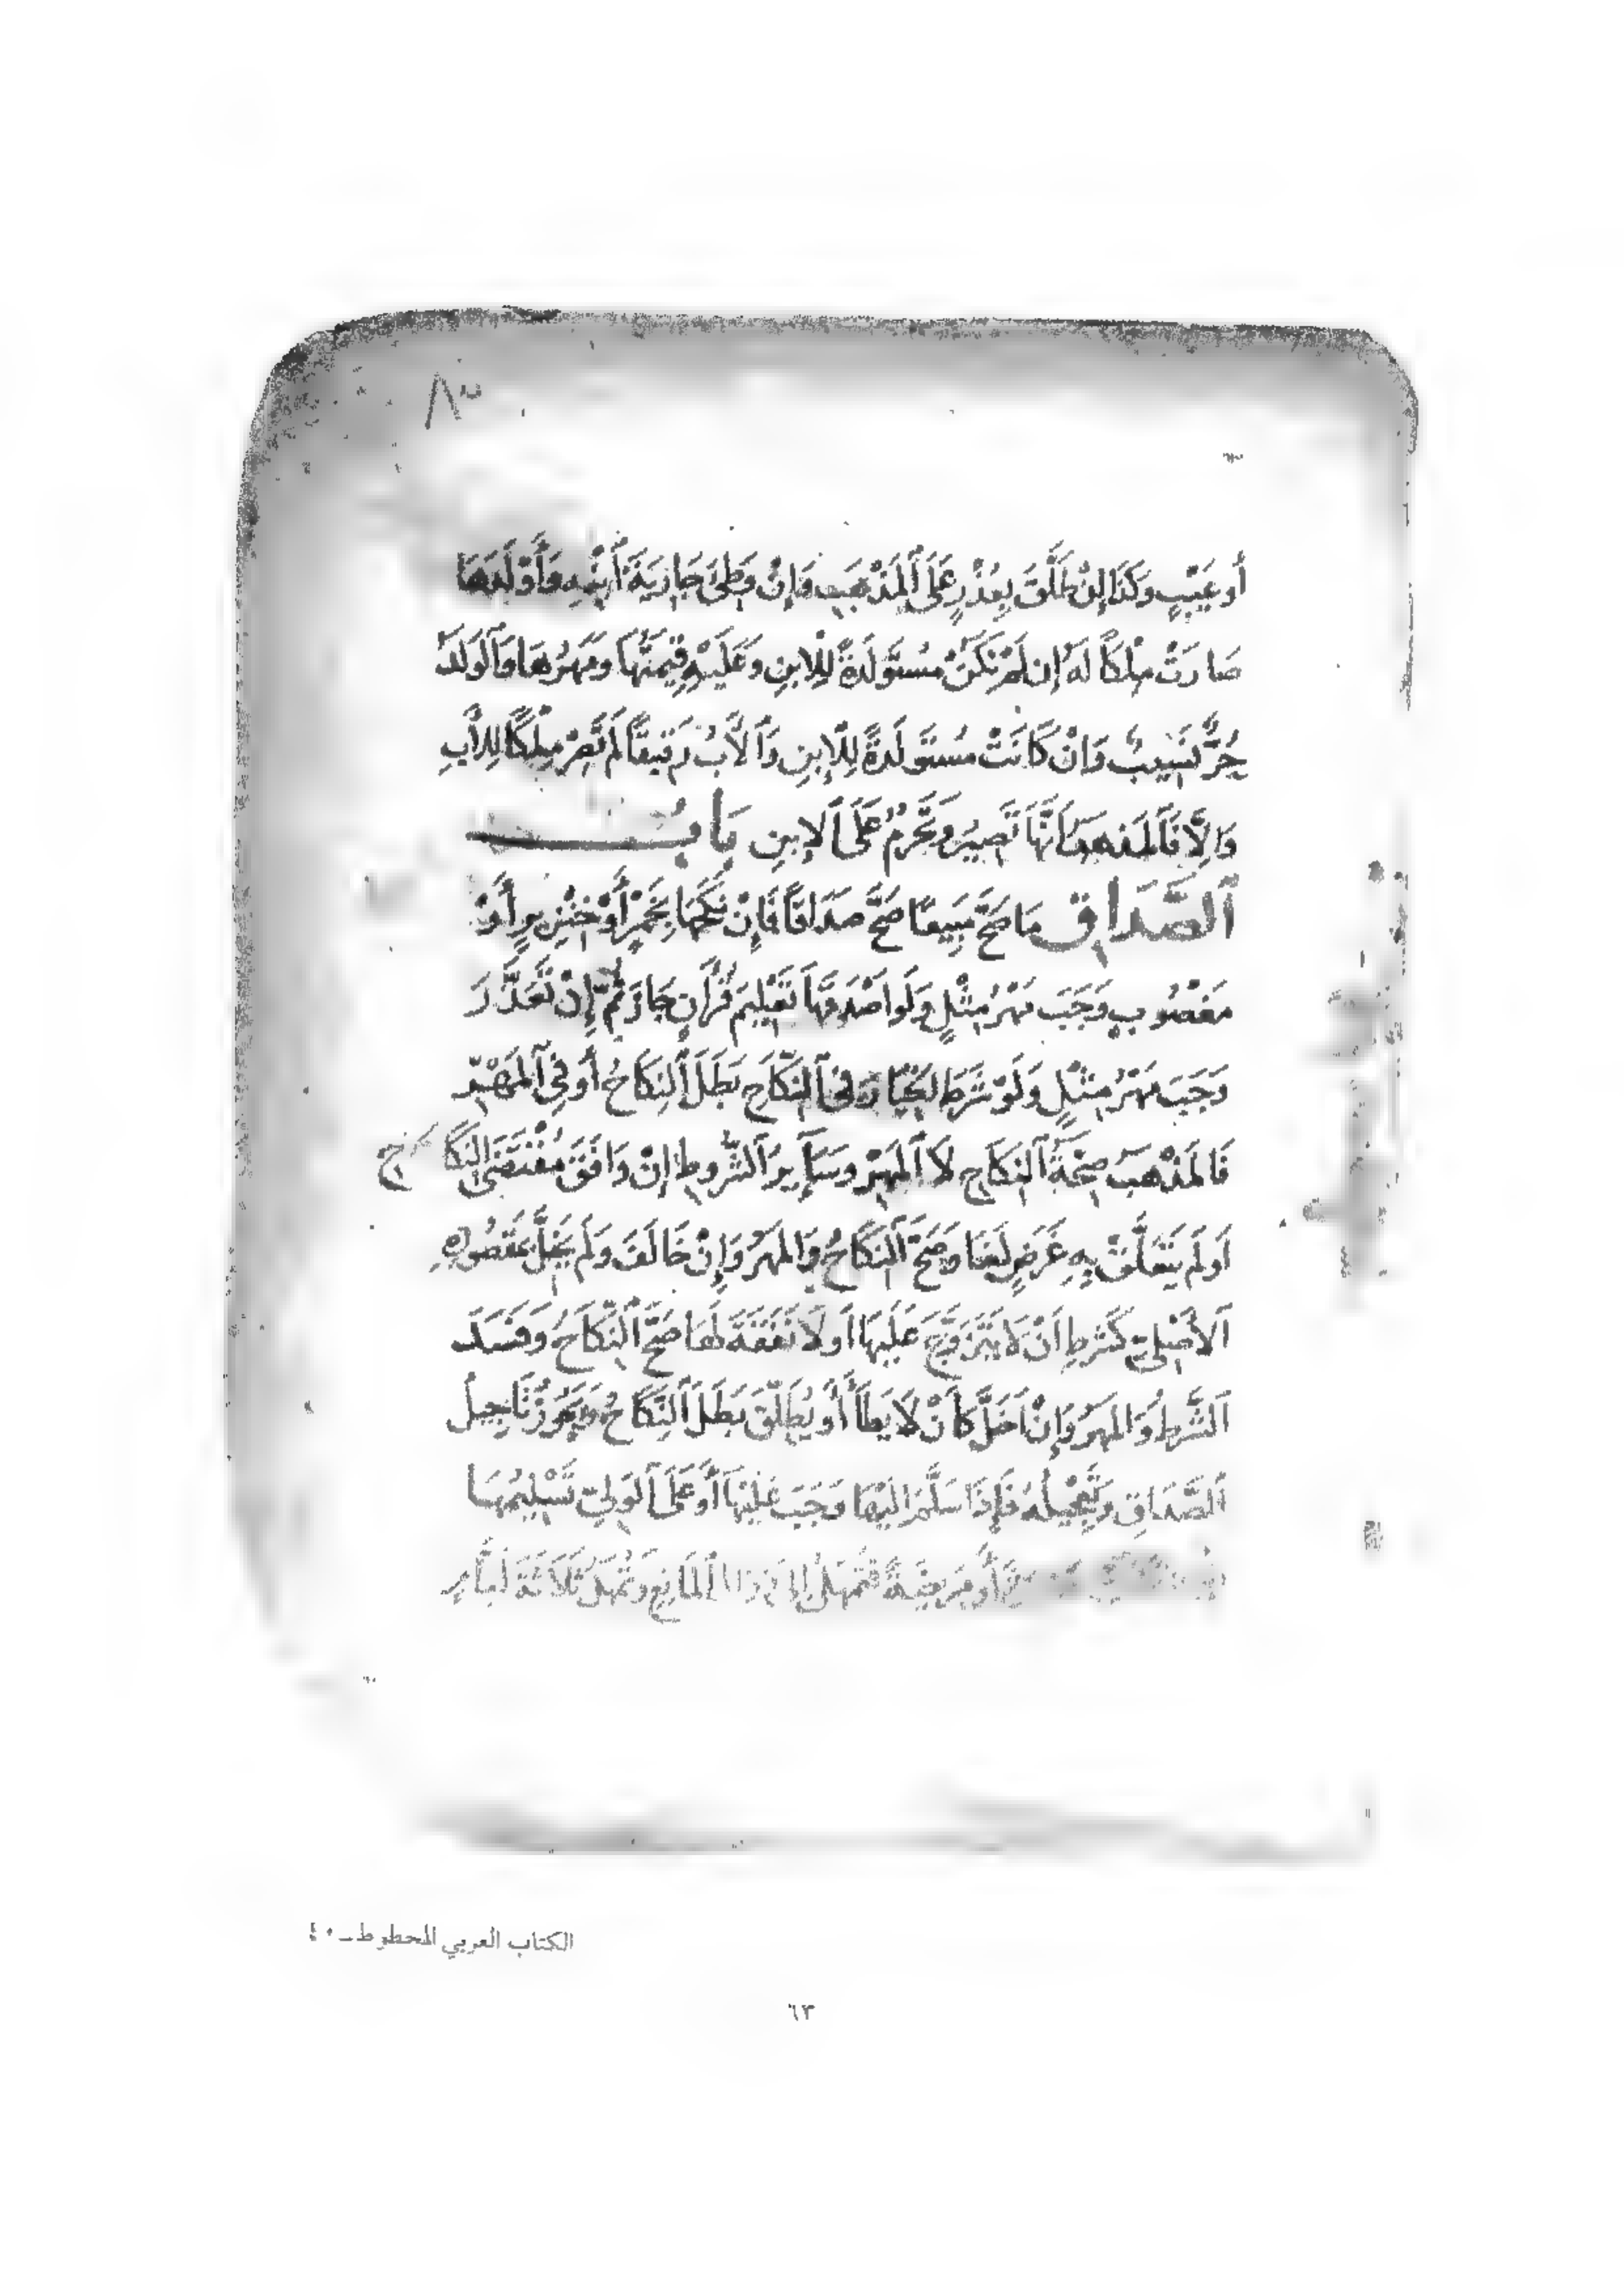 ٨٣
أَو عَيْبٍ وَكَذَا إِنْ طَلَّقَ بِعُذْرٍ عَلَى ٱلْمَذْهَبِ وَإِنْ وَطِئَ جَارِيَةَ ٱبْنِهِ وَأَوْلَدَهَا
صَارَتْ مِلْكاً لَهُ إِن لَمْ تَكُنْ مُسْتَوْلَدَةً لِلِابنِ وَعَلَيْهِ قِيمَتُهَا وَمَهْرُهَا وَٱلْوَلَدُ
حُرٌّ نَسِيبٌ وَإِنْ كَانَتْ مُسْتَوْلَدَةً لِلِابنِ وَٱلْأَبُ رَقيقاً لَمْ تَصِرْ مِلْكًا لِلْأَبِ
وَإِلَّا فَٱلْمَذهبُ أَنَّهَا تَصِيرُ وَتَحْرُمُ عَلَى ٱلِابنِ بَابُ
ٱلصَّدَاقِ مَا صَحَّ مَبِيعًا صَحَّ صَدَاقًا فَإِنْ نَكَحَهَا بِخَمْرٍ أَوْ خِنْزِيرٍ أَوْ
مَغْصُوبٍ وَجَبَ مَهْرُ مِثْلٍ وَلَو أَصْدَقَهَا تَعْلِيمَ قُرْآنٍ جَازَ ثُمَّ إِنْ تَعَذَّرَ
وَجَبَ مَهْرُ مِثْلٍ وَلَوْ شَرَطَ الخِيَارَ فِى ٱلنِّكَاحِ بَطَلَ ٱلنِّكَاحُ أَو فِي ٱلْمَهْرِ
فَالمَذْهَبُ صِحَّةُ ٱلنِّكَاحِ لَا ٱلْمَهْرِ وَسَآئِرُ ٱلشُّرُوطِ إِنْ وَافَقَ مُقْتَضَى النِّكَاحِ
أَو لَم يَتَعَلَّقْ بِهِ غَرَضٌ لَغَا وَصَحَّ ٱلنِّكَاحُ وَالمَهْرُ وَإِنْ خَالَفَ وَلَم يُخِلَّ بمَقصُودِهِ
ٱلْأَصْلِيِّ كَشَرطِ أَنْ لَا يَتَزَوَّجَ عَلَيْهَا أَو لَا نَفَقَةَ لَهَا صَحَّ ٱلنِّكَاحُ وَفَسَدَ
ٱلشَّرطُ وَالمَهرُ وَإِنْ أَخَلَّ كَأَنْ لَا يَطَأَ أَو يُطَلِّقَ بَطَلَ ٱلنِّكَاحُ وَيَجُوزُ تَاجِيلُ
ٱلصَّدَاقِ وَتَعْجِيلُهُ فَإِذَا سَلَّمَ إِلَيْهَا وَجَبَ عَلَيْهَا أَوْ عَلَى ٱلوَلِيِّ تَسْلِيمُهَا
أَو مَرِيضَةً فَتُمْهَلُ إِلَى زَوَالِ ٱلمَانِعِ وَتُمْهَلُ ثَلَاثَةَ أَيَّامٍ
الكتاب العربي المخطوط ــ ٤٠
٦٣